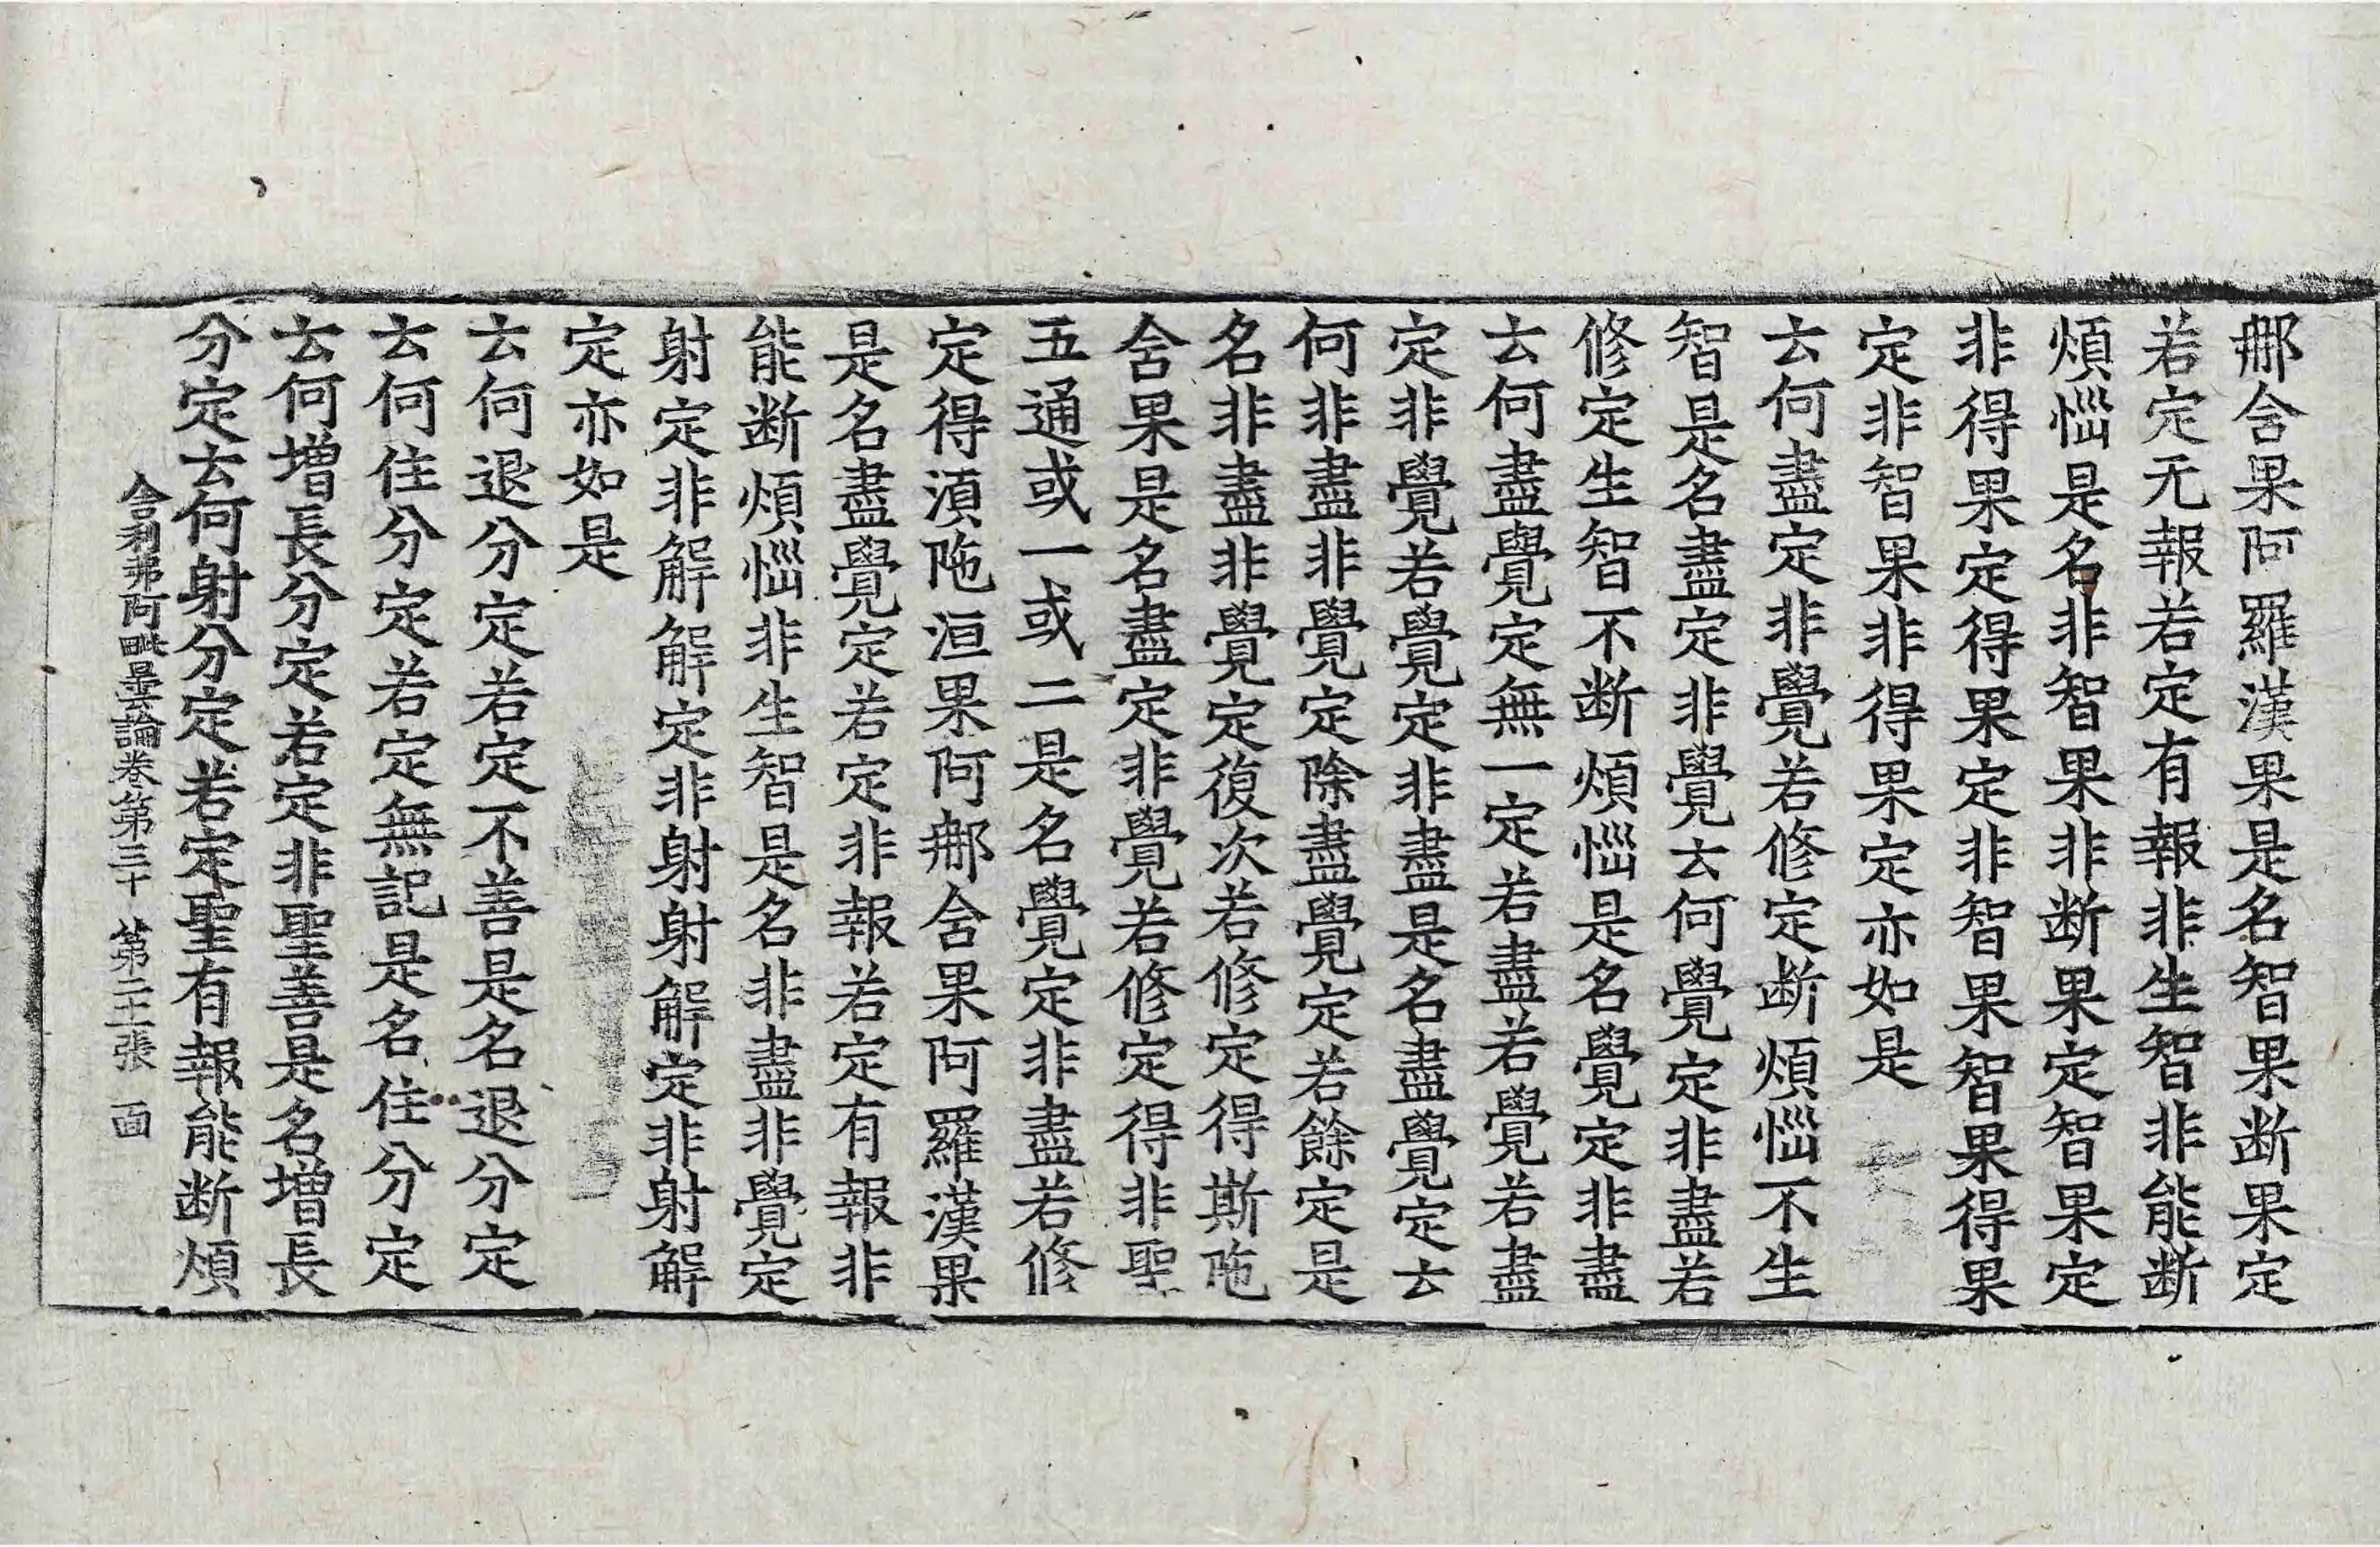 那舍果阿羅漢果是名智果断果定
若定无報若定有報非生智非能断
煩惱是名非智果非断果定智果定
非得果定得果定非智果智果得果
定非智果非得果定亦如是
云何盡定非覺若修定断煩惱不生
智是名盡定非覺云何覺定非盡若
修定生智不断煩惱是名覺定非盡
云何盡覺定無一定若盡若覺若盡
定非覺若覺定非盡是名盡覺定云
何非盡非覺定除盡覺定若餘定是
名非盡非覺定復次若修定得斯陁
含果是名盡定非覺若修定得非聖
五通或一或二是名覺定非盡若修
定得湏陁洹果阿那舍果阿羅漢果
是名盡覺定若定非報若定有報非
能断煩惱非生智是名非盡非覺定
射定非解解定非射射解定非射解
定亦如是
云何退分定若定不善是名退分定
云何住分定若定無記是名住分定
云何增長分定若定非聖善是名增長
分定云何射分定若定聖有報能断煩
舍利弗阿毗曇論卷第三十 第二十張 面